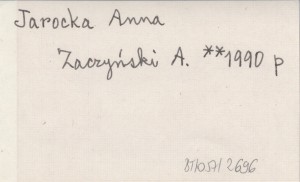 Jarocka Anna
Zaczyński A. **1990 p
87/057/2696